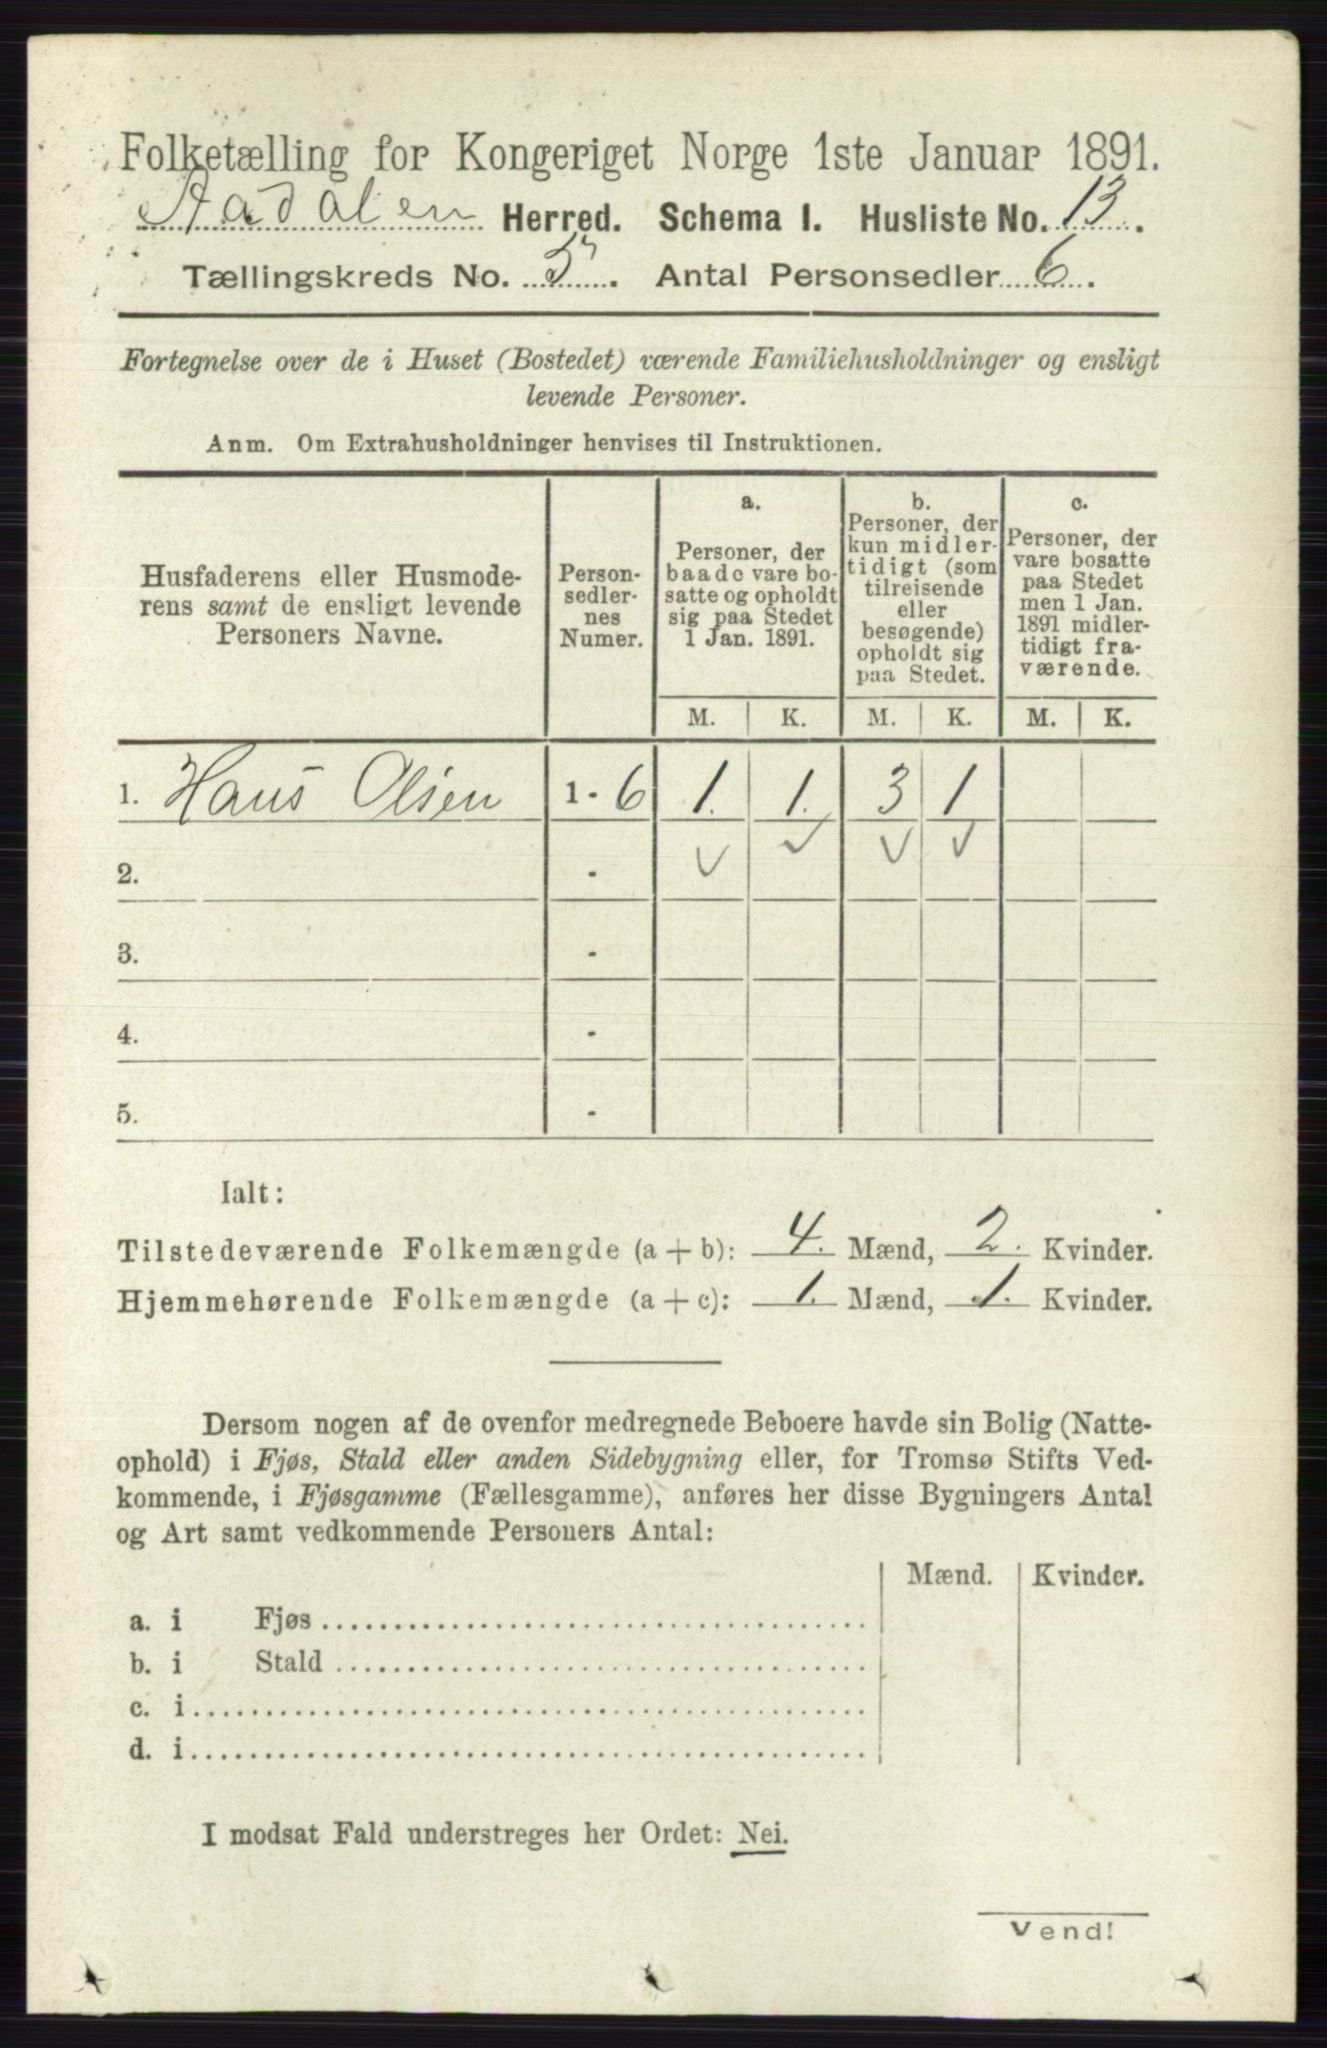 Folketælling for Kongeriget Norge 1ste Januar 1891.
Aadalen Herred. Schema I. Husliste No. 13.
Tællingskreds No. 5. Antal Personsedler 6.
Fortegnelse over de i Huset (Bostedet) værende Familiehusholdninger og ensligt
levende Personer.
Anm. Om Extrahusholdninger henvises til Instruktionen.
Husfaderens eller Husmode-
rens samt de ensligt levende
Personers Navne.
Person-
sedler-
nes
Numer.
a.
Personer, der
baade vare bo-
satte og opholdt
sig paa Stedet
1 Jan. 1891.
b.
Personer, der
kun midler-
tidigt (som
tilreisende
eller
besøgende)
opholdt sig
paa Stedet.
c.
Personer, der
vare bosatte
paa Stedet
men 1 Jan.
1891 midler-
tidigt fra-
værende.
M. K. M. K. M. K.
1. Hans Olsen 1 - 6 1. 1. 3 1
2. -
3. -
4. -
5. -
Ialt:
Tilstedeværende Folkemængde (a + b): 4. Mænd, 2. Kvinder.
Hjemmehørende Folkemængde (a + c): 1. Mænd, 1. Kvinder.
Dersom nogen af de ovenfor medregnede Beboere havde sin Bolig (Natte-
ophold) i Fjøs, Stald eller anden Sidebygning eller, for Tromsø Stifts Ved-
kommende, i Fjøsgamme (Fællesgamme), anføres her disse Bygningers Antal
og Art samt vedkommende Personers Antal:
Mænd. Kvinder.
a. i Fjøs
b. i Stald
c. i
d. i
I modsat Fald understreges her Ordet: Nei.
Vend!